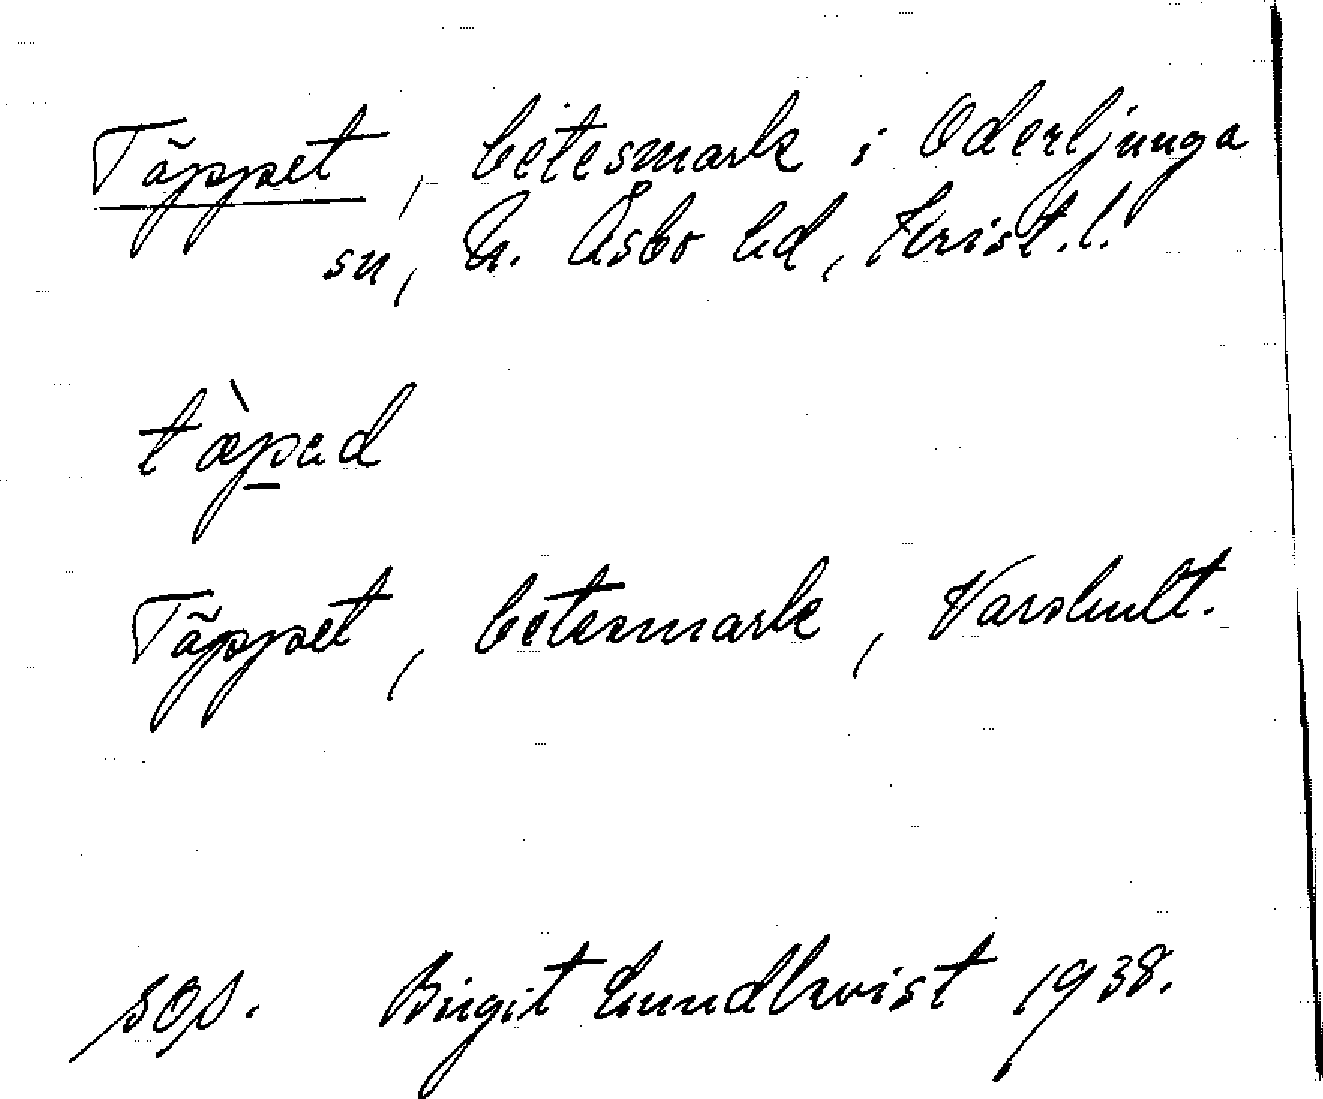 Täppet, betesmark i Oderljunga
sn, N. Åsbo hd, Krist. l.
tæ̀pad
Täppet, betesmark, Varshult.
sop. Birgit Lundkvist 1938.